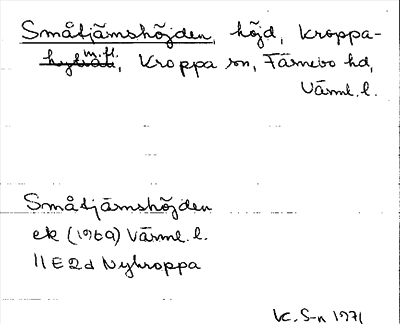 Småtjämshöjden, höjd, Kroppa-
m.fl., Kroppa sn, Färnebo hd,
Värml. l.
Småtjämshöjden
ek (1969) Värml. l.
11E2d Nykroppa
VC. S-n 1971